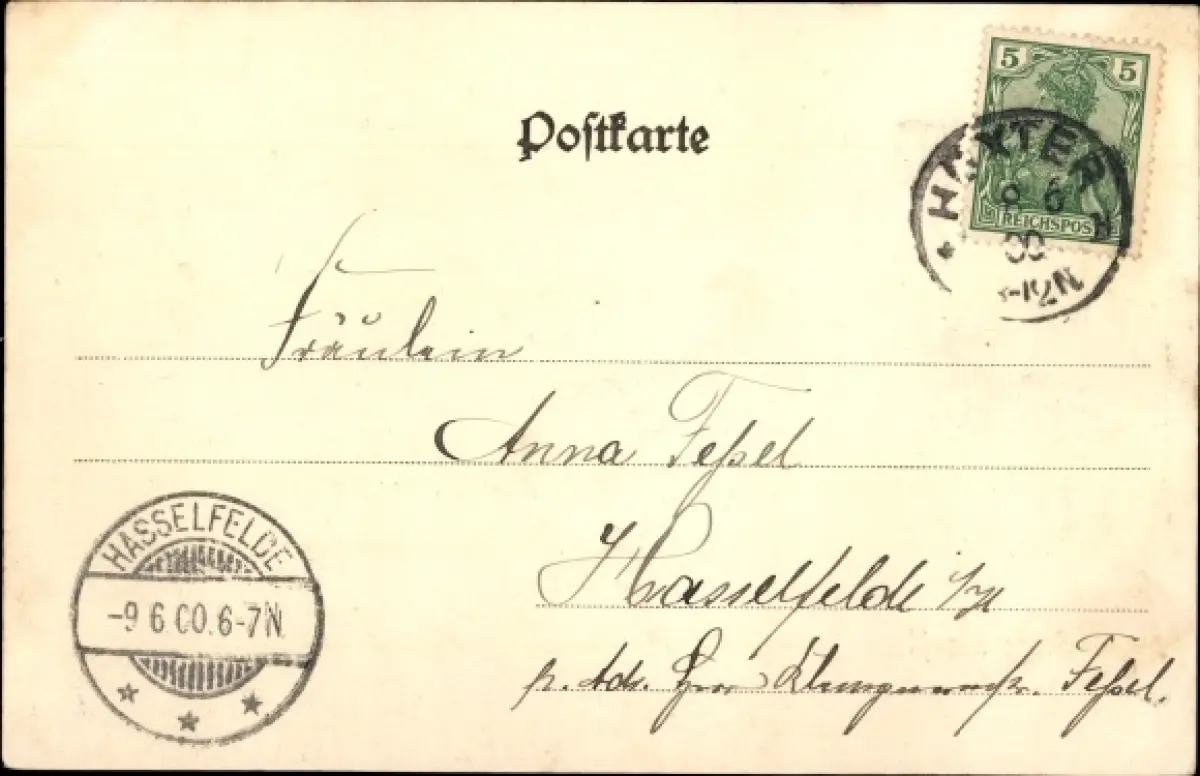 5 5
REICHSPOST
HÖXTER
8 6
00
-12N
Postkarte
Fräulein
Anna Feßel
Hasselfelde i/H
p. Adr. Herrn Feßel.
HASSELFELDE
-9 6 00. 6-7N